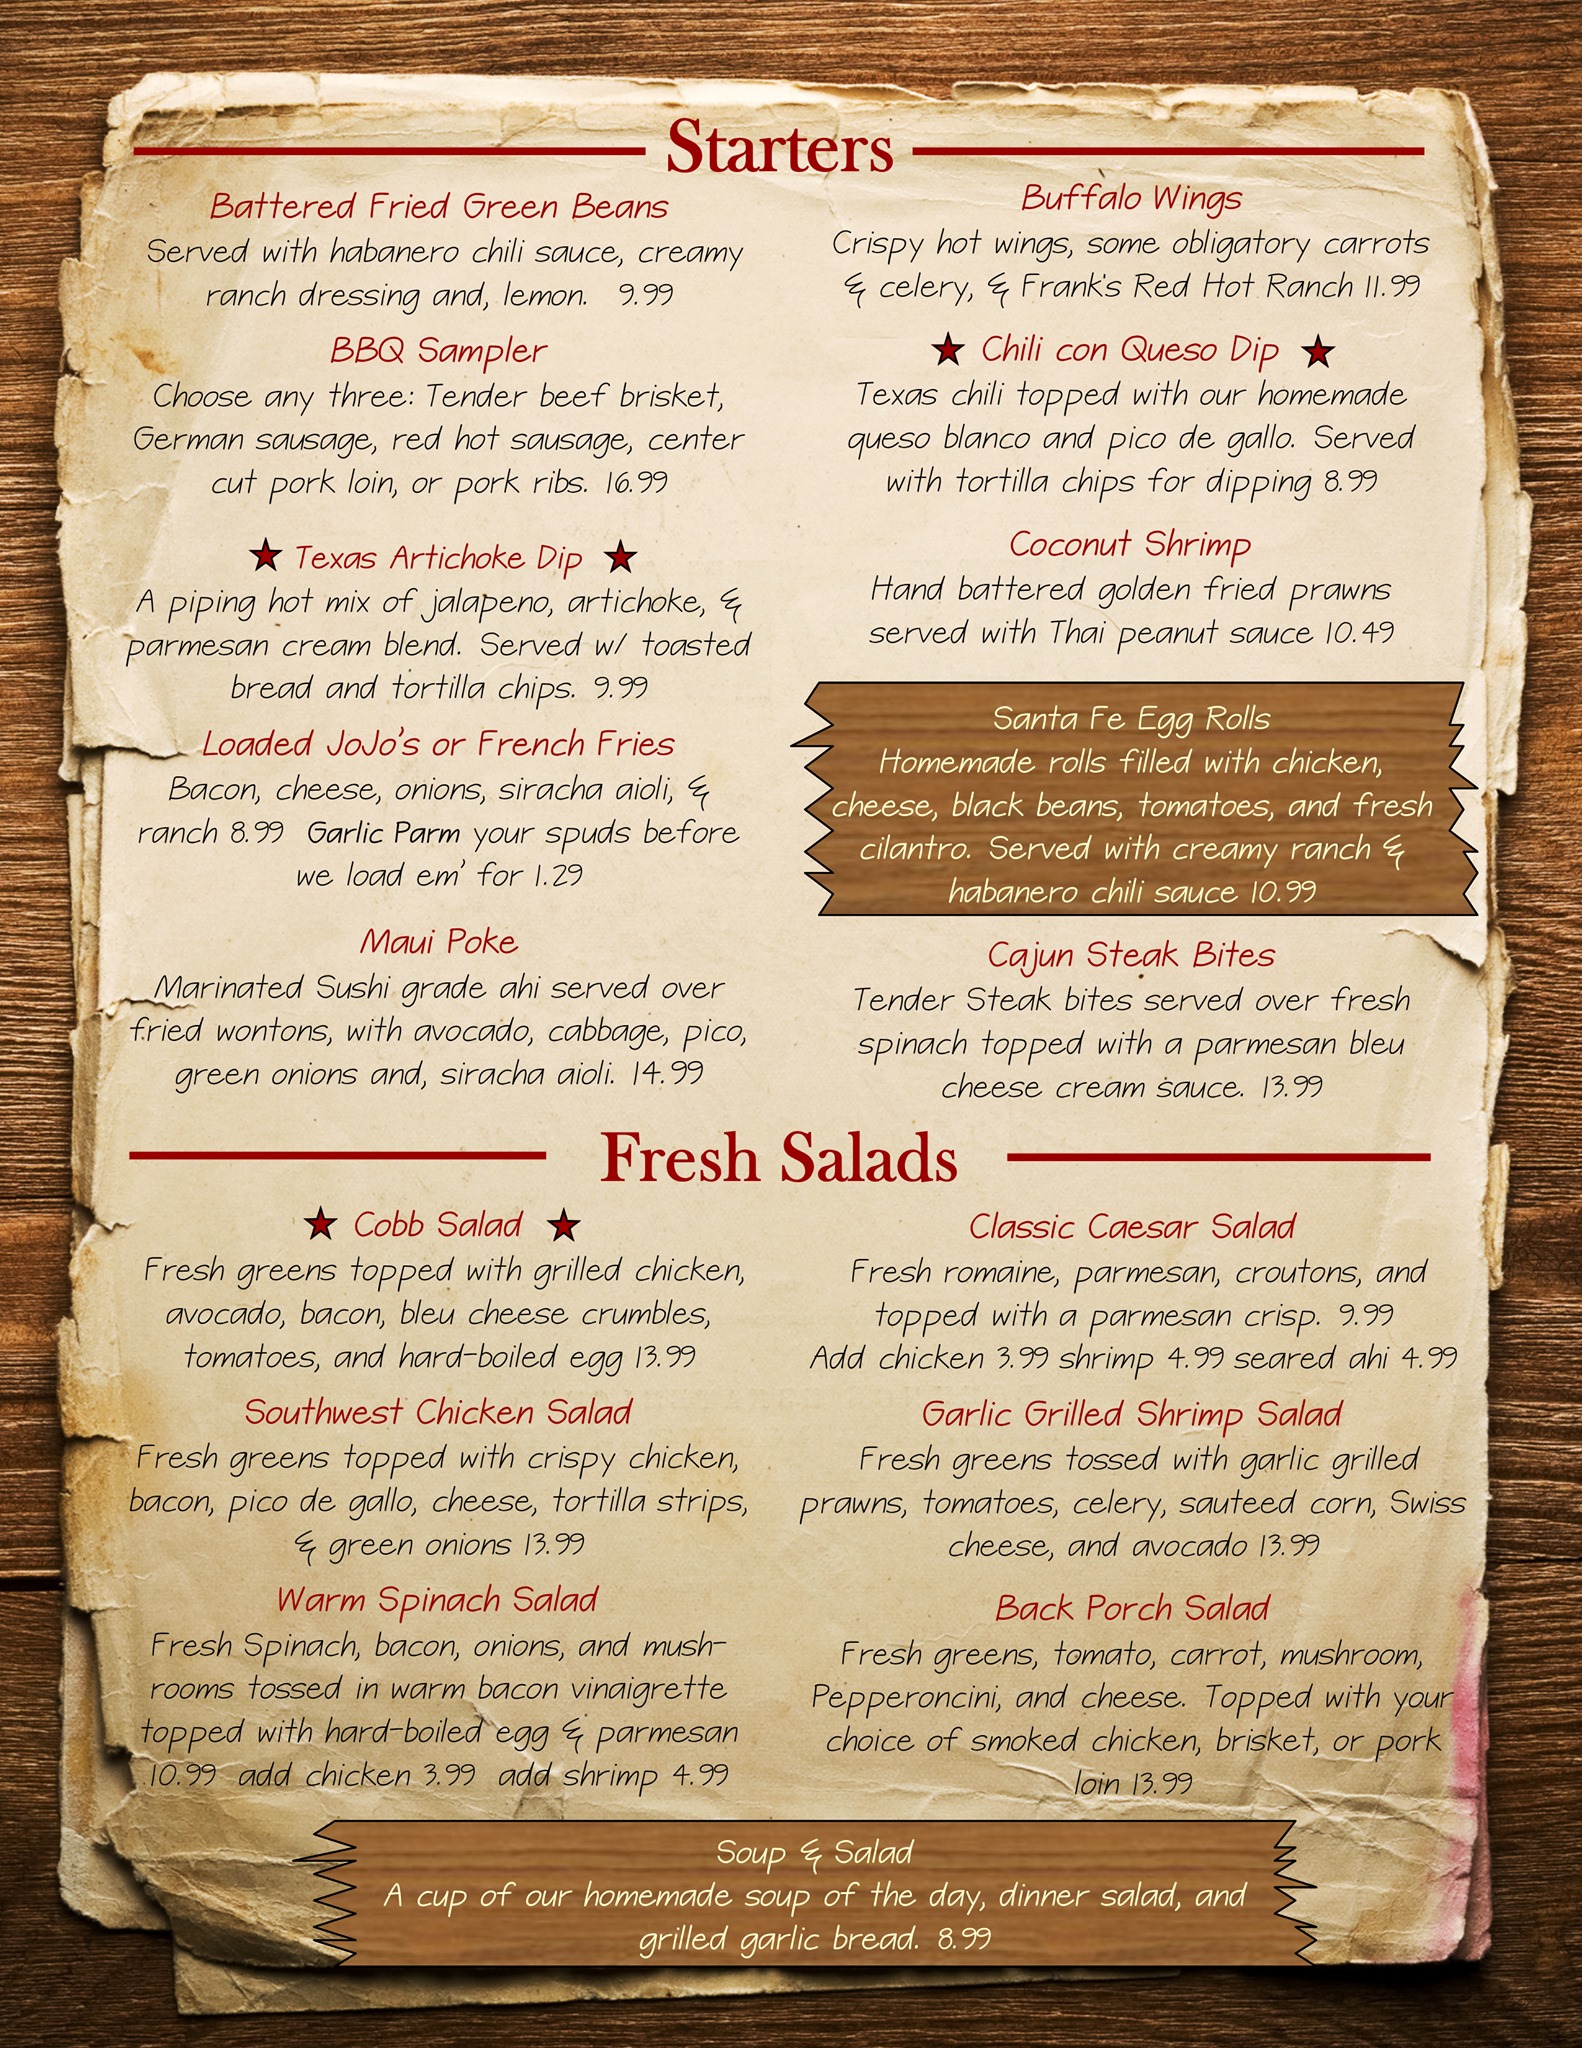 Starters
Battered Fried Green Beans
Served with habanero chili sauce, creamy
ranch dressing and, lemon. 9.99
BBQ Sampler
Choose any three: Tender beef brisket,
German sausage, red hot sausage, center
cut pork loin, or pork ribs. 16.99
Texas Artichoke Dip
A piping hot mix of jalapeno, artichoke, &
parmesan cream blend. Served w/ toasted
bread and tortilla chips. 9.99
Loaded JoJo's or French Fries
Bacon, cheese, onions, siracha aioli, &
ranch 8.99 Garlic Parm your spuds before
we load em' for 1.29
Maui Poke
Marinated Sushi grade ahi served over
fried wontons, with avocado, cabbage, pico,
green onions and, siracha aioli. 14.99
Buffalo Wings
Crispy hot wings, some obligatory carrots
& celery, & Frank's Red Hot Ranch 11.99
Chili con Queso Dip
Texas chili topped with our homemade
queso blanco and pico de gallo. Served
with tortilla chips for dipping 8.99
Coconut Shrimp
Hand battered golden fried prawns
served with Thai peanut sauce 10.49
Santa Fe Egg Rolls
Homemade rolls filled with chicken,
cheese, black beans, tomatoes, and fresh
cilantro. Served with creamy ranch &
habanero chili sauce 10.99
Cajun Steak Bites
Tender Steak bites served over fresh
spinach topped with a parmesan bleu
cheese cream sauce. 13.99
Fresh Salads
Cobb Salad
Fresh greens topped with grilled chicken,
avocado, bacon, bleu cheese crumbles,
tomatoes, and hard-boiled egg 13.99
Southwest Chicken Salad
Fresh greens topped with crispy chicken,
bacon, pico de gallo, cheese, tortilla strips,
& green onions 13.99
Warm Spinach Salad
Fresh Spinach, bacon, onions, and mush-
rooms tossed in warm bacon vinaigrette
topped with hard-boiled egg & parmesan
10.99 add chicken 3.99 add shrimp 4.99
Classic Caesar Salad
Fresh romaine, parmesan, croutons, and
topped with a parmesan crisp. 9.99
Add chicken 3.99 shrimp 4.99 seared ahi 4.99
Garlic Grilled Shrimp Salad
Fresh greens tossed with garlic grilled
prawns, tomatoes, celery, sauteed corn, Swiss
cheese, and avocado 13.99
Back Porch Salad
Fresh greens, tomato, carrot, mushroom,
Pepperoncini, and cheese. Topped with your
choice of smoked chicken, brisket, or pork
loin 13.99
Soup & Salad
A cup of our homemade soup of the day, dinner salad, and
grilled garlic bread. 8.99